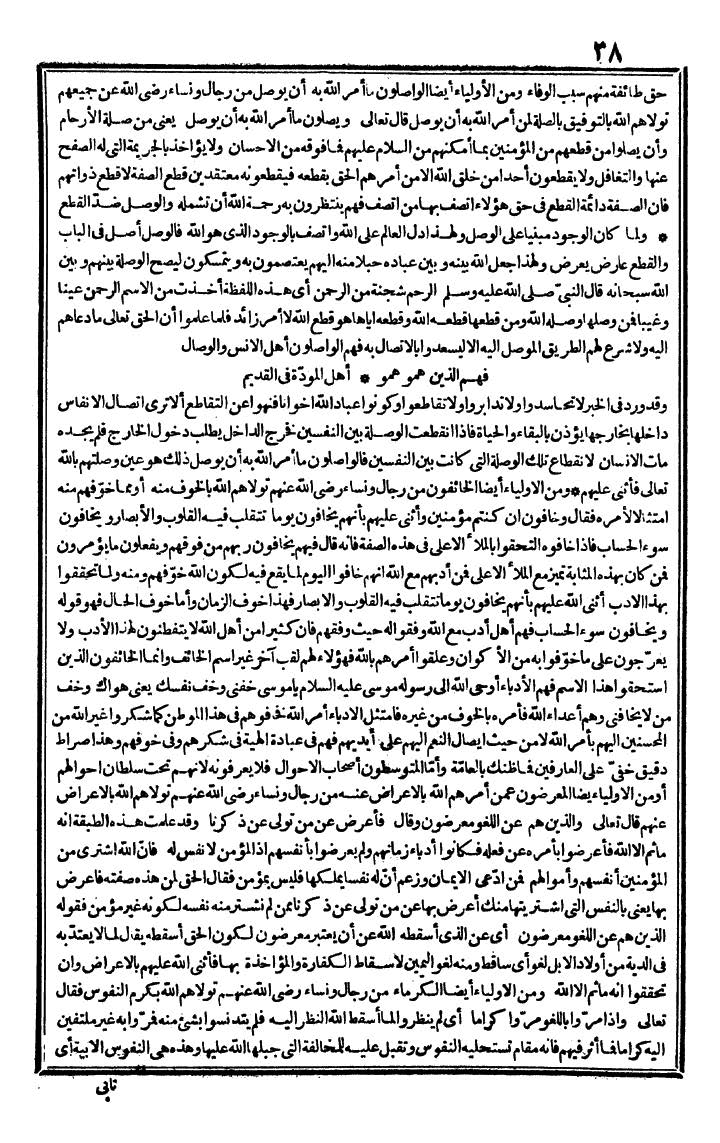 ٣٨
حق طائفة منهم سبب الوفاء ومن الأولياء أيضا الواصلون ما أمر الله به أن يوصل من رجال ونساء رضى الله عن جميعهم
تولاهم الله بالتوفيق بالصلة لمن أمر الله به أن يوصل قال تعالى ويصلون ما أمر الله به أن يوصل يعنى من صلة الأرحام
وأن يصلوا من قطعهم من المؤمنين بما أمكنهم من السلام عليهم فما فوقه من الاحسان ولا يؤاخذ بالجريمة التى له الصفح
عنها والتغافل ولا يقطعون أحدا من خلق الله الا من أمرهم الحق بقطعه فيقطعونه معتقدين قطع الصفة لا قطع ذواتهم
فان الصفة دائمة القطع فى حق هؤلاء اتصف بها من اتصف فهم ينتظرون به رحمة الله أن تشمله والوصل ضد القطع
* ولما كان الوجود مبنيا على الوصل ولهذا دل العالم على الله واتصف بالوجود الذى هو الله فالوصل أصل فى الباب
والقطع عارض يعرض ولهذا جعل الله بينه وبين عباده حبلا منه اليهم يعتصمون به ويتمسكون ليصح الوصلة بينهم وبين
الله سبحانه قال النبى صلى الله عليه وسلم الرحم شجنة من الرحمن أى هذه اللفظة أخذت من الاسم الرحمن عينا
وغيبا فمن وصلها وصله الله ومن قطعها قطعه الله وقطعه اياها هو قطع الله لا أمر زائد فلما علموا أن الحق تعالى ما دعاهم
اليه ولا شرع لهم الطريق الموصل اليه الا ليسعدوا بالاتصال به فهم الواصلون أهل الانس والوصال
فهم الذين همو همو * أهل المودة فى القديم
وقد ورد فى الخبر لا تحاسدوا ولا تدابروا ولا تقاطعوا وكونوا عباد الله اخوانا فنهوا عن التقاطع ألا ترى اتصال الانفاس
داخلها بخارجها يؤذن بالبقاء والحياة فاذا انقطعت الوصلة بين النفسين فخرج الداخل يطلب دخول الخارج فلم يجده
مات الانسان لانقطاع تلك الوصلة التى كانت بين النفسين فالواصلون ما أمر الله به أن يوصل ذلك هو عين وصلتهم بالله
تعالى فأثنى عليهم * ومن الاولياء أيضا الخائفون من رجال ونساء رضى الله عنهم تولاهم الله بالخوف منه أو مما خوفهم منه
امتثالا لأمره فقال وخافون ان كنتم مؤمنين وأثنى عليهم بأنهم يخافون يوما تتقلب فيه القلوب والأبصار ويخافون
سوء الحساب فاذا خافوه التحقوا بالملأ الاعلى فى هذه الصفة فانه قال فيهم يخافون ربهم من فوقهم ويفعلون ما يؤمرون
فمن كان بهذه المثابة تميز مع الملأ الاعلى فمن أدبهم مع الله انهم خافوا اليوم لما يقع فيه لكون الله خوفهم منه ولما تحققوا
بهذا الادب أثنى الله عليهم بأنهم يخافون يوما تتقلب فيه القلوب والابصار فهذا خوف الزمان وأما خوف الحال فهو قوله
ويخافون سوء الحساب فهم أهل أدب مع الله وفقوا له حيث وفقهم فان كثيرا من أهل الله لا يتفطنون لهذا الأدب ولا
يعرجون على ما خوفوا به من الأكوان وعلقوا أمرهم بالله فهؤلاء لهم لقب آخر غير اسم الخائف وانما الخائفون الذين
استحقوا هذا الاسم فهم الأدباء أوحى الله الى رسوله موسى عليه السلام ياموسى خفنى وخف نفسك يعنى هواك وخف
من لا يخافنى وهم أعداء الله فأمره بالخوف من غيره فامتثل الادباء أمر الله فخافوهم فى هذا الموطن كما شكروا غير الله من
المحسنين اليهم بأمر الله لا من حيث ايصال النعم اليهم على أيديهم فهم فى عبادة الهية فى شكرهم وفى خوفهم وهذا صراط
دقيق خفى على العارفين فما ظنك بالعامة وأما المتوسطون أصحاب الاحوال فلا يعرفونه لانهم تحت سلطان احوالهم
أو من الاولياء يضا المعرضون عمن أمرهم الله بالاعراض عنه من رجال ونساء رضى الله عنهم تولاهم الله بالاعراض
عنهم قال تعالى والذين هم عن اللغو معرضون وقال فأعرض عن من تولى عن ذكرنا وقد علمت هذه الطبقة انه
ما ثم الا الله فأعرضوا بأمره عن فعله فكانوا أدباء زمانهم ولم يعرضوا بأنفسهم اذ المؤمن لا نفس له فان الله اشترى من
المؤمنين أنفسهم وأموالهم فمن ادعى الايمان وزعم أن له نفسا يملكها فليس بمؤمن فقال الحق لمن هذه صفته فاعرض
بها يعنى بالنفس التى اشتريتها منك أعرض بها عن من تولى عن ذكرنا ممن لم نشتر منه نفسه لكونه غير مؤمن فقوله
الذين هم عن اللغو معرضون أى عن الذى أسقطه الله عن أن يعتبر معرضون لكون الحق أسقطه يقال لما لا يعتد به
فى الدية من أولاد الابل لغو أى ساقط ومنه لغو اليمين لاسقاط الكفارة والمؤاخذة بها فأثنى الله عليهم بالاعراض وان
تحققوا انه ما ثم الا الله ومن الاولياء أيضا الكرماء من رجال ونساء رضى الله عنهم تولاهم الله بكرم النفوس فقال
تعالى واذا مروا باللغو مروا كراما أى لم ينظروا لما أسقط الله النظر اليه فلم يتدنسوا بشئ منه فمروا به غير ملتفتين
اليه كراما فما أثر فيهم فانه مقام تستحليه النفوس وتقبل عليه للمخالفة التى جبلها الله عليها وهذه هى النفوس الابية أى
تابى